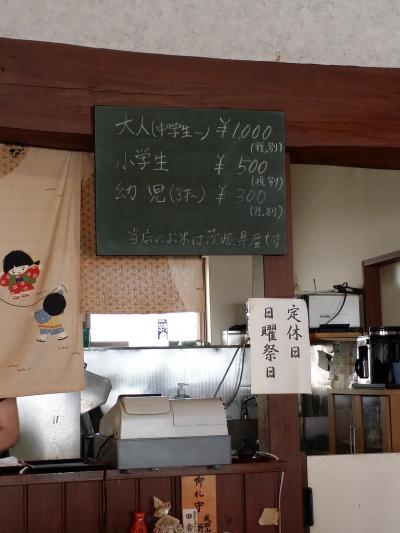 大人(中学生〜) ¥1,000
(税別)
小学生 ¥500
(税別)
幼児(3才〜) ¥300
(税別)
当店のお米は茨城県産です
定休日
日曜祭日
御札
成田山
田舎